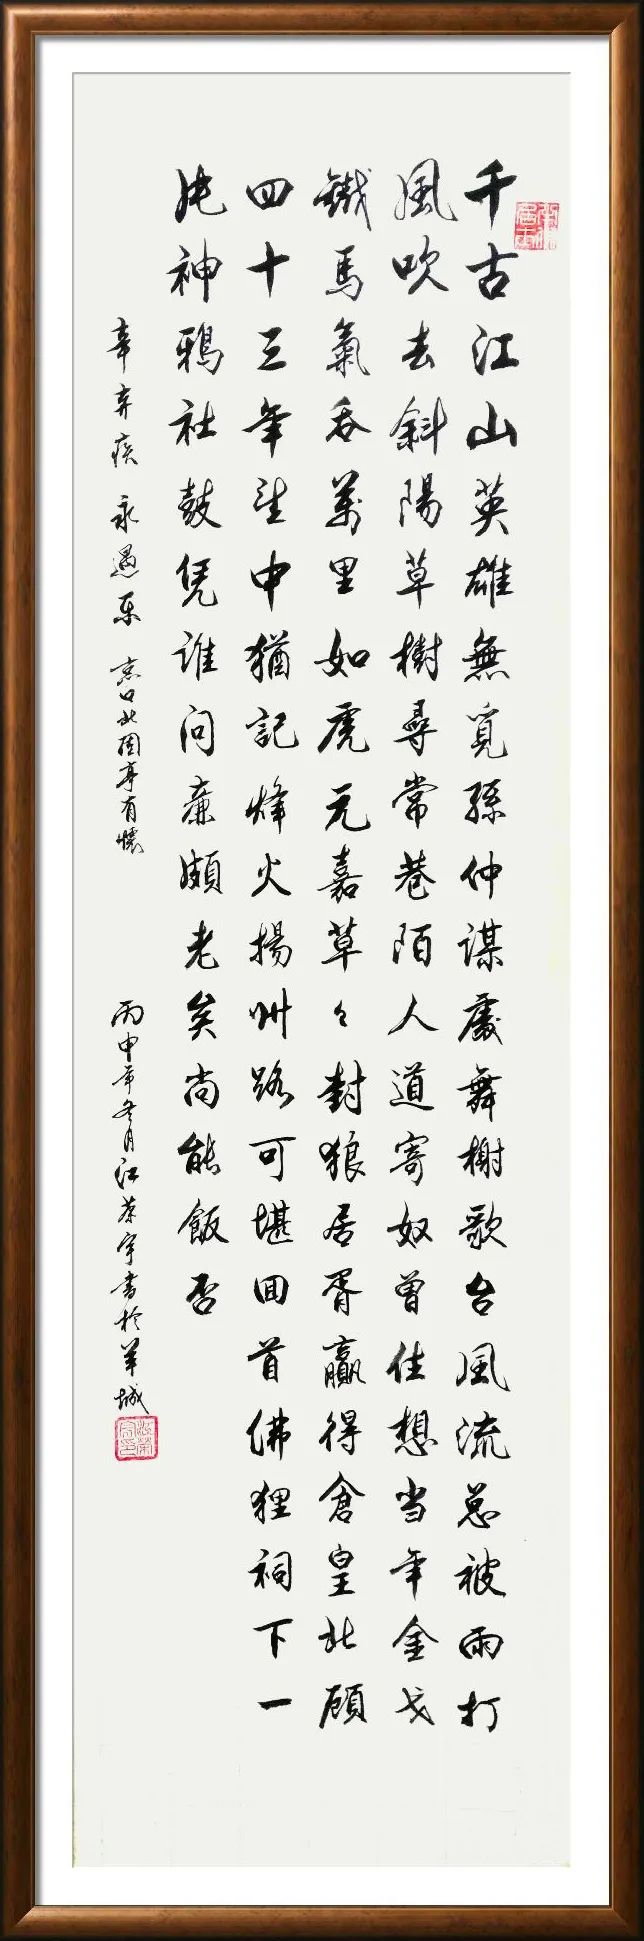 千古江山英雄無覓孫仲謀處舞榭歌台風流总被雨打
風吹去斜陽草樹尋常巷陌人道寄奴曾住想当年金戈
鐵馬氣吞萬里如虎元嘉草々封狼居胥贏得倉皇北顾
四十三年望中猶記烽火揚州路可堪回首佛狸祠下一
片神鴉社鼓凭谁问廉頗老矣尚能飯否
辛弃疾 永遇乐 京口北固亭有懷
丙申年冬月江荣宇書於羊城